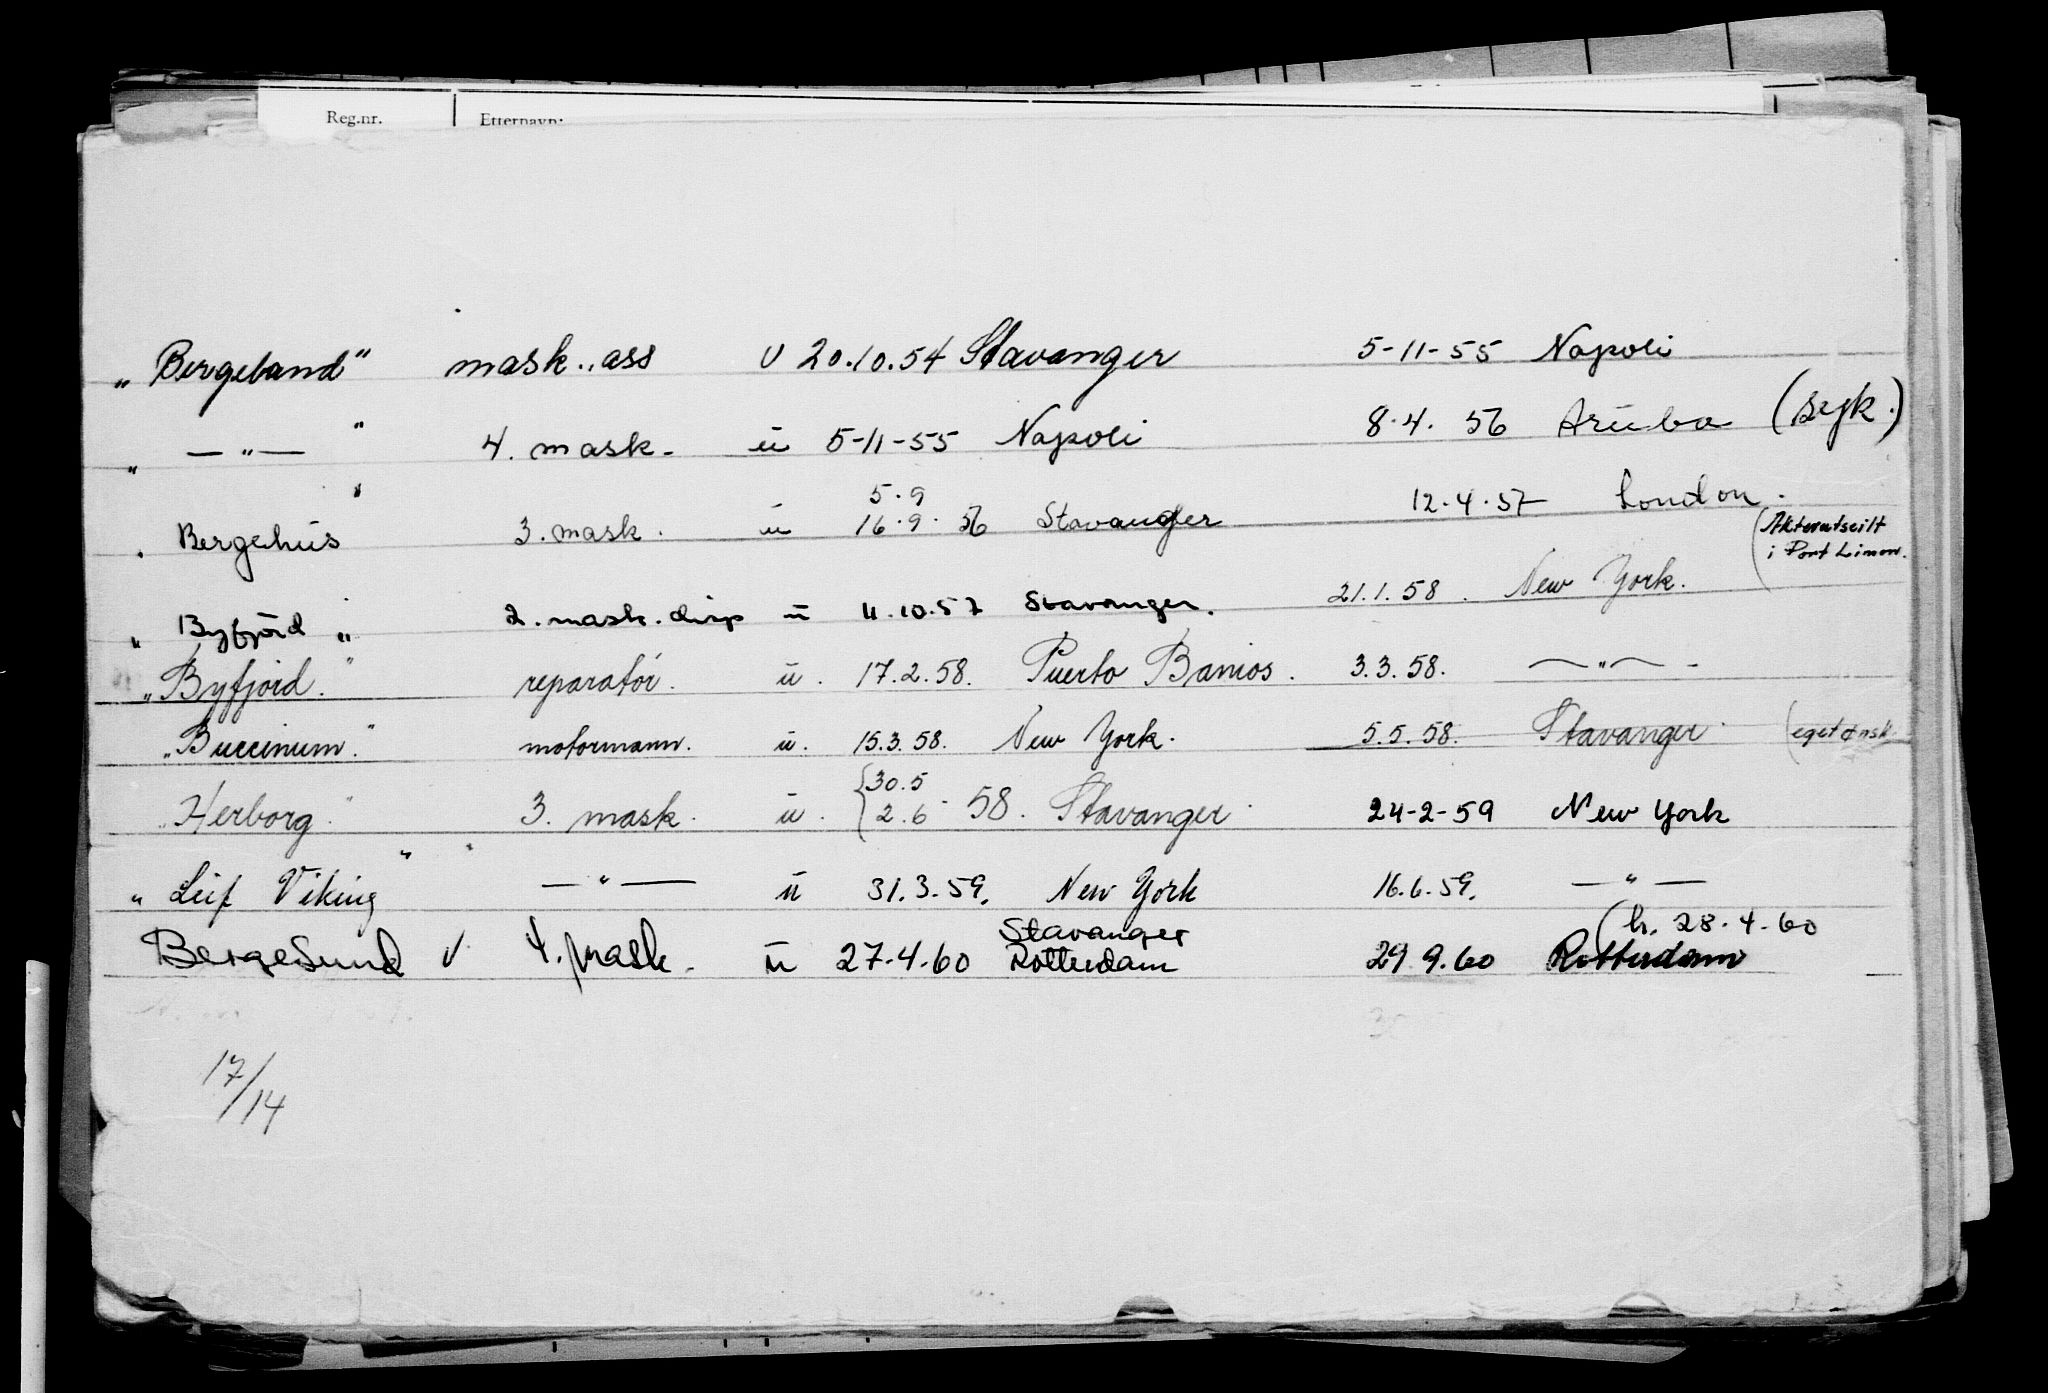 Reg.nr. Etternavn:
„Bergeland" mask.ass u 20.10.54 Stavanger 5-11-55 Napoli
„ —"— " 4. mask. u 5-11-55 Napoli 8.4.56 Aruba (syk.)
5.9
„Bergehus" 3. mask. u 16.9.56 Stavanger 12.4.57 London.
(Akterutseilt
i Port Limon.
„Byfjord" 2. mask. disp u 11.10.57 Stavanger. 21.1.58. New York.
„Byfjord." reparatør. u. 17.2.58. Puerto Barrios. 3.3.58. —"—
„Buccinum." motormann. u. 15.3.58. New York. 5.5.58. Stavanger (eget ønsk
{30.5
„Herborg" 3. mask. u. {2.6.58. Stavanger. 24-2-59 New York
„Leif Viking" —"— u 31.3.59. New York 16.6.59. —"—
Stavanger (h. 28.4.60
Bergesund v 4. mask. u 27.4.60 Rotterdam 29.9.60 Rotterdam
17/14